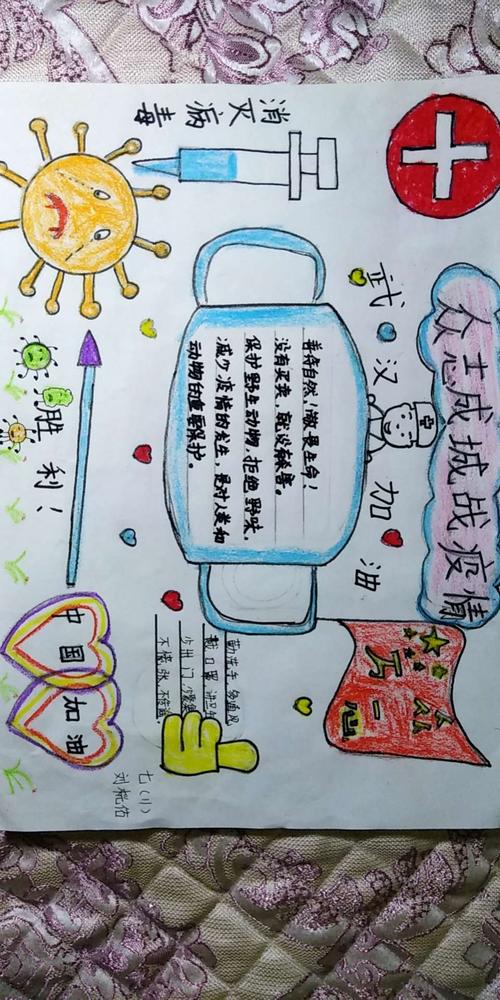 众志成城战疫情
武汉加油
消灭病毒
善待自然！敬畏生命！
没有买卖，就没有杀害。
保护野生动物，拒绝野味，
减少疫情的发生，是对人类和
动物的重要保护。
众
万一心
胜利！
勤洗手 多通风
戴口罩 讲卫生
少出门 少聚集
不慌张 不
中国
加油
七（11）